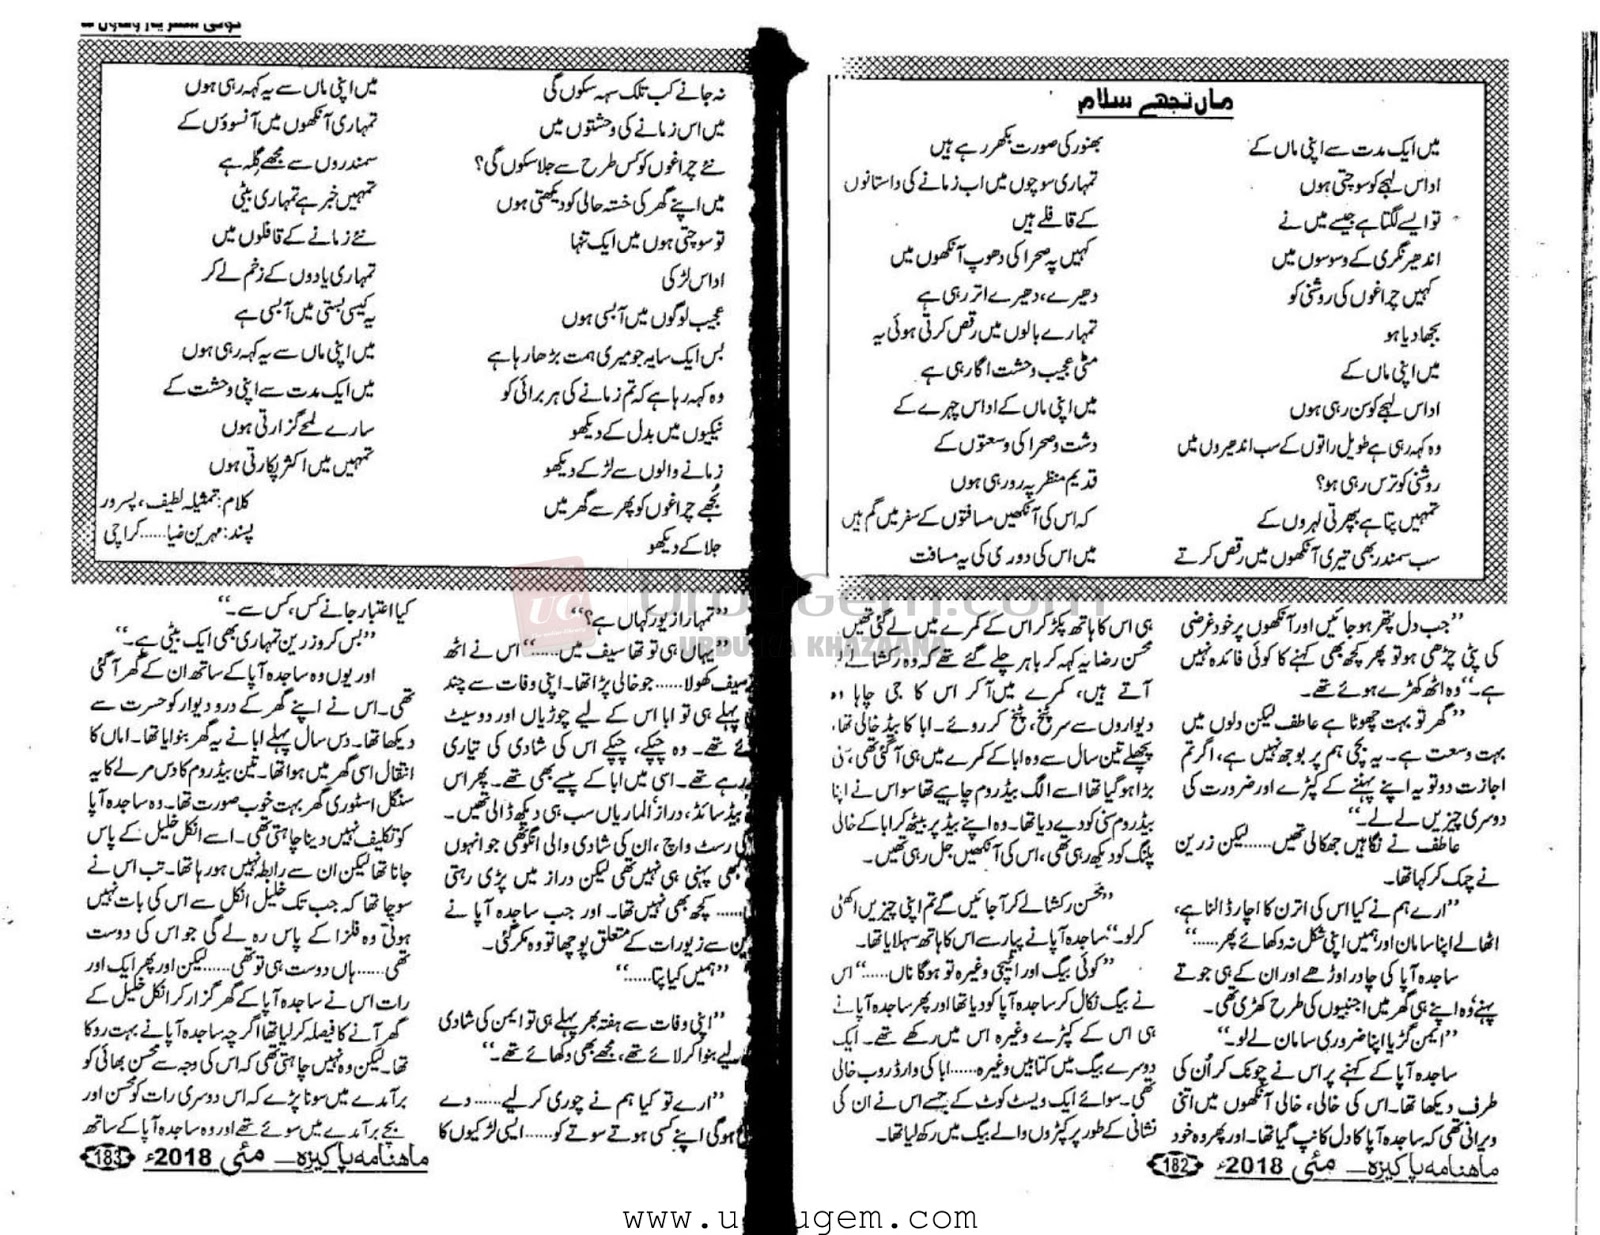 ماں تجھے سلام
میں ایک مدت سے اپنی ماں کے
اداس لہجے کو سوچتی ہوں
تو ایسے لگتا ہے جیسے میں نے
اندھیر نگری کے وسوسوں میں
کہیں چراغوں کی روشنی کو
بجھا دیا ہو
میں اپنی ماں کے
اداس لہجے کو سن رہی ہوں
وہ کہہ رہی ہے طویل راتوں کے سب اندھیروں میں
روشنی کو ترس رہی ہو؟
تمہیں پتا ہے بپھرتی لہروں کے
سب سمندر بھی تیری آنکھوں میں رقص کرتے
بھنور کی صورت بکھر رہے ہیں
تمہاری سوچوں میں اب زمانے کی داستانوں
کے قافلے ہیں
کہیں پہ صحرا کی دھوپ آنکھوں میں
دھیرے، دھیرے اتر رہی ہے
تمہارے بالوں میں رقص کرتی ہوئی یہ
مٹی عجیب وحشت اگا رہی ہے
میں اپنی ماں کے اداس چہرے کے
دشت و صحرا کی وسعتوں کے
قدیم منظر پہ رو رہی ہوں
کہ اس کی آنکھیں مسافتوں کے سفر میں گم ہیں
میں اس کی دوری کی یہ مسافت
’’جب دل پتھر ہو جائیں اور آنکھوں پر خود غرضی
کی پٹی چڑھی ہو تو پھر کچھ بھی کہنے کا کوئی فائدہ نہیں
ہے۔‘‘ وہ اٹھ کھڑے ہوئے تھے۔
’’گھر تو بہت چھوٹا ہے عاطف لیکن دلوں میں
بہت وسعت ہے۔ یہ بچی ہم پر بوجھ نہیں ہے، اگر تم
اجازت دو تو یہ اپنے پہننے کے کپڑے اور ضرورت کی
دوسری چیزیں لے لے۔‘‘
عاطف نے نگاہیں جھکالی تھیں...... لیکن زرین
نے چمک کر کہا تھا۔
’’ارے ہم نے کیا اس کی اترن کا اچار ڈالنا ہے،
اٹھا لے اپنا سامان اور ہمیں اپنی شکل نہ دکھائے پھر......‘‘
ساجدہ آپا کی چادر اوڑھے اور ان کے ہی جوتے
پہنے وہ اپنے ہی گھر میں اجنبیوں کی طرح کھڑی تھی۔
’’ایمن گڑیا اپنا ضروری سامان لے لو۔‘‘
ساجدہ آپا کے کہنے پر اس نے چونک کر اُن کی
طرف دیکھا تھا۔ اس کی خالی، خالی آنکھوں میں اتنی
ویرانی تھی کہ ساجدہ آپا کا دل کانپ گیا تھا۔ اور پھر وہ خود
ہی اس کا ہاتھ پکڑ کر اس کے کمرے میں لے گئی تھیں
محسن رضا یہ کہہ کر باہر چلے گئے تھے کہ وہ رکشا لے کر
آتے ہیں، کمرے میں آکر اس کا جی چاہا وہ
دیواروں سے سر پٹخ، پٹخ کر روئے۔ ابا کا بیڈ خالی تھا،
پچھلے تین سال سے وہ ابا کے کمرے میں ہی آگئی تھی،
بڑا ہو گیا تھا اسے الگ بیڈ روم چاہیے تھا سو اس نے اپنا
بیڈ روم سنی کو دے دیا تھا۔ وہ اپنے بیڈ پر بیٹھ کر ابا کے خالی
پلنگ کو دیکھ رہی تھی، اس کی آنکھیں جل رہی تھیں۔
’’محسن رکشا لے کر آجائیں گے تم اپنی چیزیں اکھٹی
کر لو۔‘‘ ساجدہ آپا نے پیار سے اس کا ہاتھ سہلایا تھا۔
’’کوئی بیگ اور اٹیچی وغیرہ تو ہوگا ناں......‘‘ اس
نے بیگ نکال کر ساجدہ آپا کو دیا تھا اور پھر ساجدہ آپا نے
ہی اس کے کپڑے وغیرہ اس میں رکھے تھے۔ ایک
دوسرے بیگ میں کتابیں وغیرہ...... ابا کی وارڈ روب خالی
تھی۔ سوائے ایک ویسٹ کوٹ کے جسے اس نے ان کی
نشانی کے طور پر کپڑوں والے بیگ میں رکھ لیا تھا۔
ماہنامہ پاکیزہ ــ مئی 2018ء 182
نہ جانے کب تلک سہہ سکوں گی
میں اس زمانے کی وحشتوں میں
نئے چراغوں کو کس طرح سے جلا سکوں گی؟
میں اپنے گھر کی خستہ حالی کو دیکھتی ہوں
تو سوچتی ہوں میں ایک تنہا
اداس لڑکی
عجیب لوگوں میں آ بسی ہوں
بس ایک سایہ جو میری ہمت بڑھا رہا ہے
وہ کہہ رہا ہے کہ تم زمانے کی ہر برائی کو
نیکیوں میں بدل کے دیکھو
زمانے والوں سے لڑ کے دیکھو
بُجھے چراغوں کو پھر سے گھر میں
جلا کے دیکھو
میں اپنی ماں سے یہ کہہ رہی ہوں
تمہاری آنکھوں میں آنسوؤں کے
سمندروں سے مجھے گِلہ ہے
تمہیں خبر ہے تمہاری بیٹی
نئے زمانے کے قافلوں میں
تمہاری یادوں کے زخم لے کر
یہ کیسی بستی میں آ بسی ہے
میں اپنی ماں سے یہ کہہ رہی ہوں
میں ایک مدت سے اپنی وحشت کے
سارے لمحے گزارتی ہوں
تمہیں میں اکثر پکارتی ہوں
کلام: تمثیلہ لطیف، پسرور
پسند: مہرین ضیا...... کراچی
’’تمہارا زیور کہاں ہے؟‘‘
’’یہاں ہی تو تھا سیف میں......‘‘ اس نے اٹھ
سیف کھولا...... جو خالی پڑا تھا۔ اپنی وفات سے چند
پہلے ہی تو ابا اس کے لیے چوڑیاں اور دو سیٹ
تھے۔ وہ چپکے، چپکے اس کی شادی کی تیاری
رہے تھے۔ اسی میں ابا کے پیسے بھی تھے۔ پھر اس
بیڈ سائڈ، دراز الماریاں سب ہی دیکھ ڈالی تھیں۔
کی رسٹ واچ، ان کی شادی والی انگوٹھی جو انہوں
بھی پہنی ہی نہیں تھی لیکن دراز میں پڑی رہتی
...... کچھ بھی نہیں تھا۔ اور جب ساجدہ آپا نے
سے زیورات کے متعلق پوچھا تو وہ مکر گئی۔
’’ہمیں کیا پتا......‘‘
’’اپنی وفات سے ہفتہ بھر پہلے ہی تو ایمن کی شادی
لیے بنوا کر لائے تھے، مجھے بھی دکھائے تھے۔‘‘
’’ارے تو کیا ہم نے چوری کر لیے...... دے
ہوگی اپنے کسی ہوتے سوتے کو...... ایسی لڑکیوں کا
کیا اعتبار جانے کس، کس سے۔‘‘
’’بس کرو زرین تمہاری بھی ایک بیٹی ہے۔‘‘
اور یوں وہ ساجدہ آپا کے ساتھ ان کے گھر آگئی
تھی۔ اس نے اپنے گھر کے در و دیوار کو حسرت سے
دیکھا تھا۔ دس سال پہلے ابا نے یہ گھر بنوایا تھا۔ اماں کا
انتقال اسی گھر میں ہوا تھا۔ تین بیڈ روم کا دس مرلے کا یہ
سنگل اسٹوری گھر بہت خوب صورت تھا۔ وہ ساجدہ آپا
کو تکلیف نہیں دینا چاہتی تھی۔ اسے انکل خلیل کے پاس
جانا تھا لیکن ان سے رابطہ نہیں ہو رہا تھا۔ تب اس نے
سوچا تھا کہ جب تک خلیل انکل سے اس کی بات نہیں
ہوتی وہ فلزا کے پاس رہ لے گی جو اس کی دوست
تھی...... ہاں دوست ہی تو تھی...... لیکن اور پھر ایک اور
رات اس نے ساجدہ آپا کے گھر گزار کر انکل خلیل کے
گھر آنے کا فیصلہ کر لیا تھا اگرچہ ساجدہ آپا نے بہت روکا
تھا۔ لیکن وہ نہیں چاہتی تھی کہ اس کی وجہ سے محسن بھائی کو
برآمدے میں سونا پڑے کہ اس دوسری رات کو محسن اور
بچے برآمدے میں سوئے تھے اور وہ ساجدہ آپا کے ساتھ
ماہنامہ پاکیزہ ــ مئی 2018ء 183
UrduGem.com
URDU KA KHAZAANA